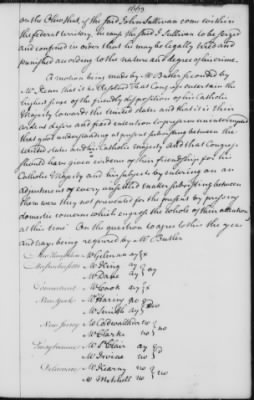 1663
on the Ohio that if the said John Sullivan come within
the federal territory, he cause the said J. Sullivan to be seized
and confined in order that he may be legally tried and
punished according to the nature and degree of his crime.
A motion being made by Mr Butler seconded by
Mr Dane that it be Resolved That Congress entertain the
highest sense of the friendly disposition of his Catholic
Majesty towards the United States and that it is their
evident desire and fixed intention to preserve uninterrupted
that good understanding at present subsisting between the
United States and his Catholic majesty and that Congress
should have given evidence of their friendship for his
Catholic Majesty and his subjects by entering on an
adjustment of every unsettled matter subsisting between
them were they not prevented for the present by pressing
domestic concerns which engross the whole of their attention
at this time. On the question to agree to this the yeas
and nays being required by Mr Butler
New Hampshire Mr Gilman ay } x
Massachusetts Mr King ay } ay
Mr Dane ay
Connecticut Mr Cook ay } x
New York Mr Haring no } no
Mr Smith ay
New Jersey Mr Cadwallader no } no
Mr Clarke no
Pensylvania Mr St Clair ay
Mr Irvine no
Delaware Mr Kearny no } no
Mr Mitchell no